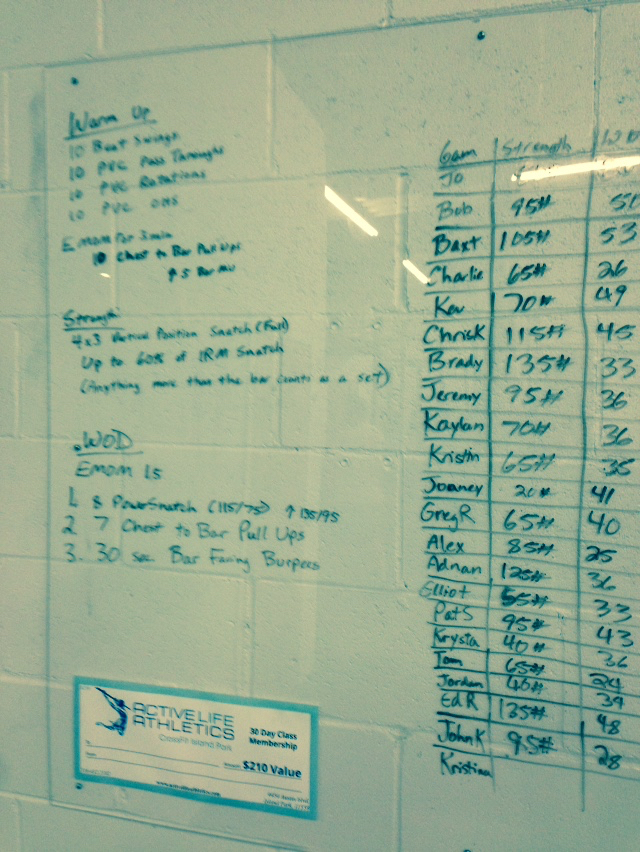 Warm Up
10 Beat Swings
10 PVC Pass Throughs
10 PVC Rotations
10 PVC OHS
Emom for 3 min
10 Chest to Bar Pull Ups
↑ 5 Bar MU
Strength
4x3 Vertical Position Snatch (Full)
Up to 60% of 1RM Snatch
(Anything more than the bar counts as a set)
WOD
Emom 15
1. 8 PowerSnatch (115/75) ↑ 135/95
2 7 Chest to Bar Pull Ups
3. 30 sec Bar Facing Burpees
6am Strength
Jo
Bob 95#
Baxt 105# 53
Charlie 65# 26
Kev 70# 49
ChrisK 115# 45
Brady 135# 33
Jeremy 95# 36
Kaylan 70# 36
Kristin 65# 35
Joaney 20# 41
GregR 65# 40
Alex 85# 25
Adnan 125# 36
Elliot 55# 33
PatS 95# 43
Krysta 40# 36
Tom 65# 24
Jordan 40# 39
EdR 135# 48
JohnK 95# 28
Kristina
ACTIVE LIFE ATHLETICS
CrossFit Island Park
30 Day Class
Membership
$210 Value
www.activelifeathletics.com